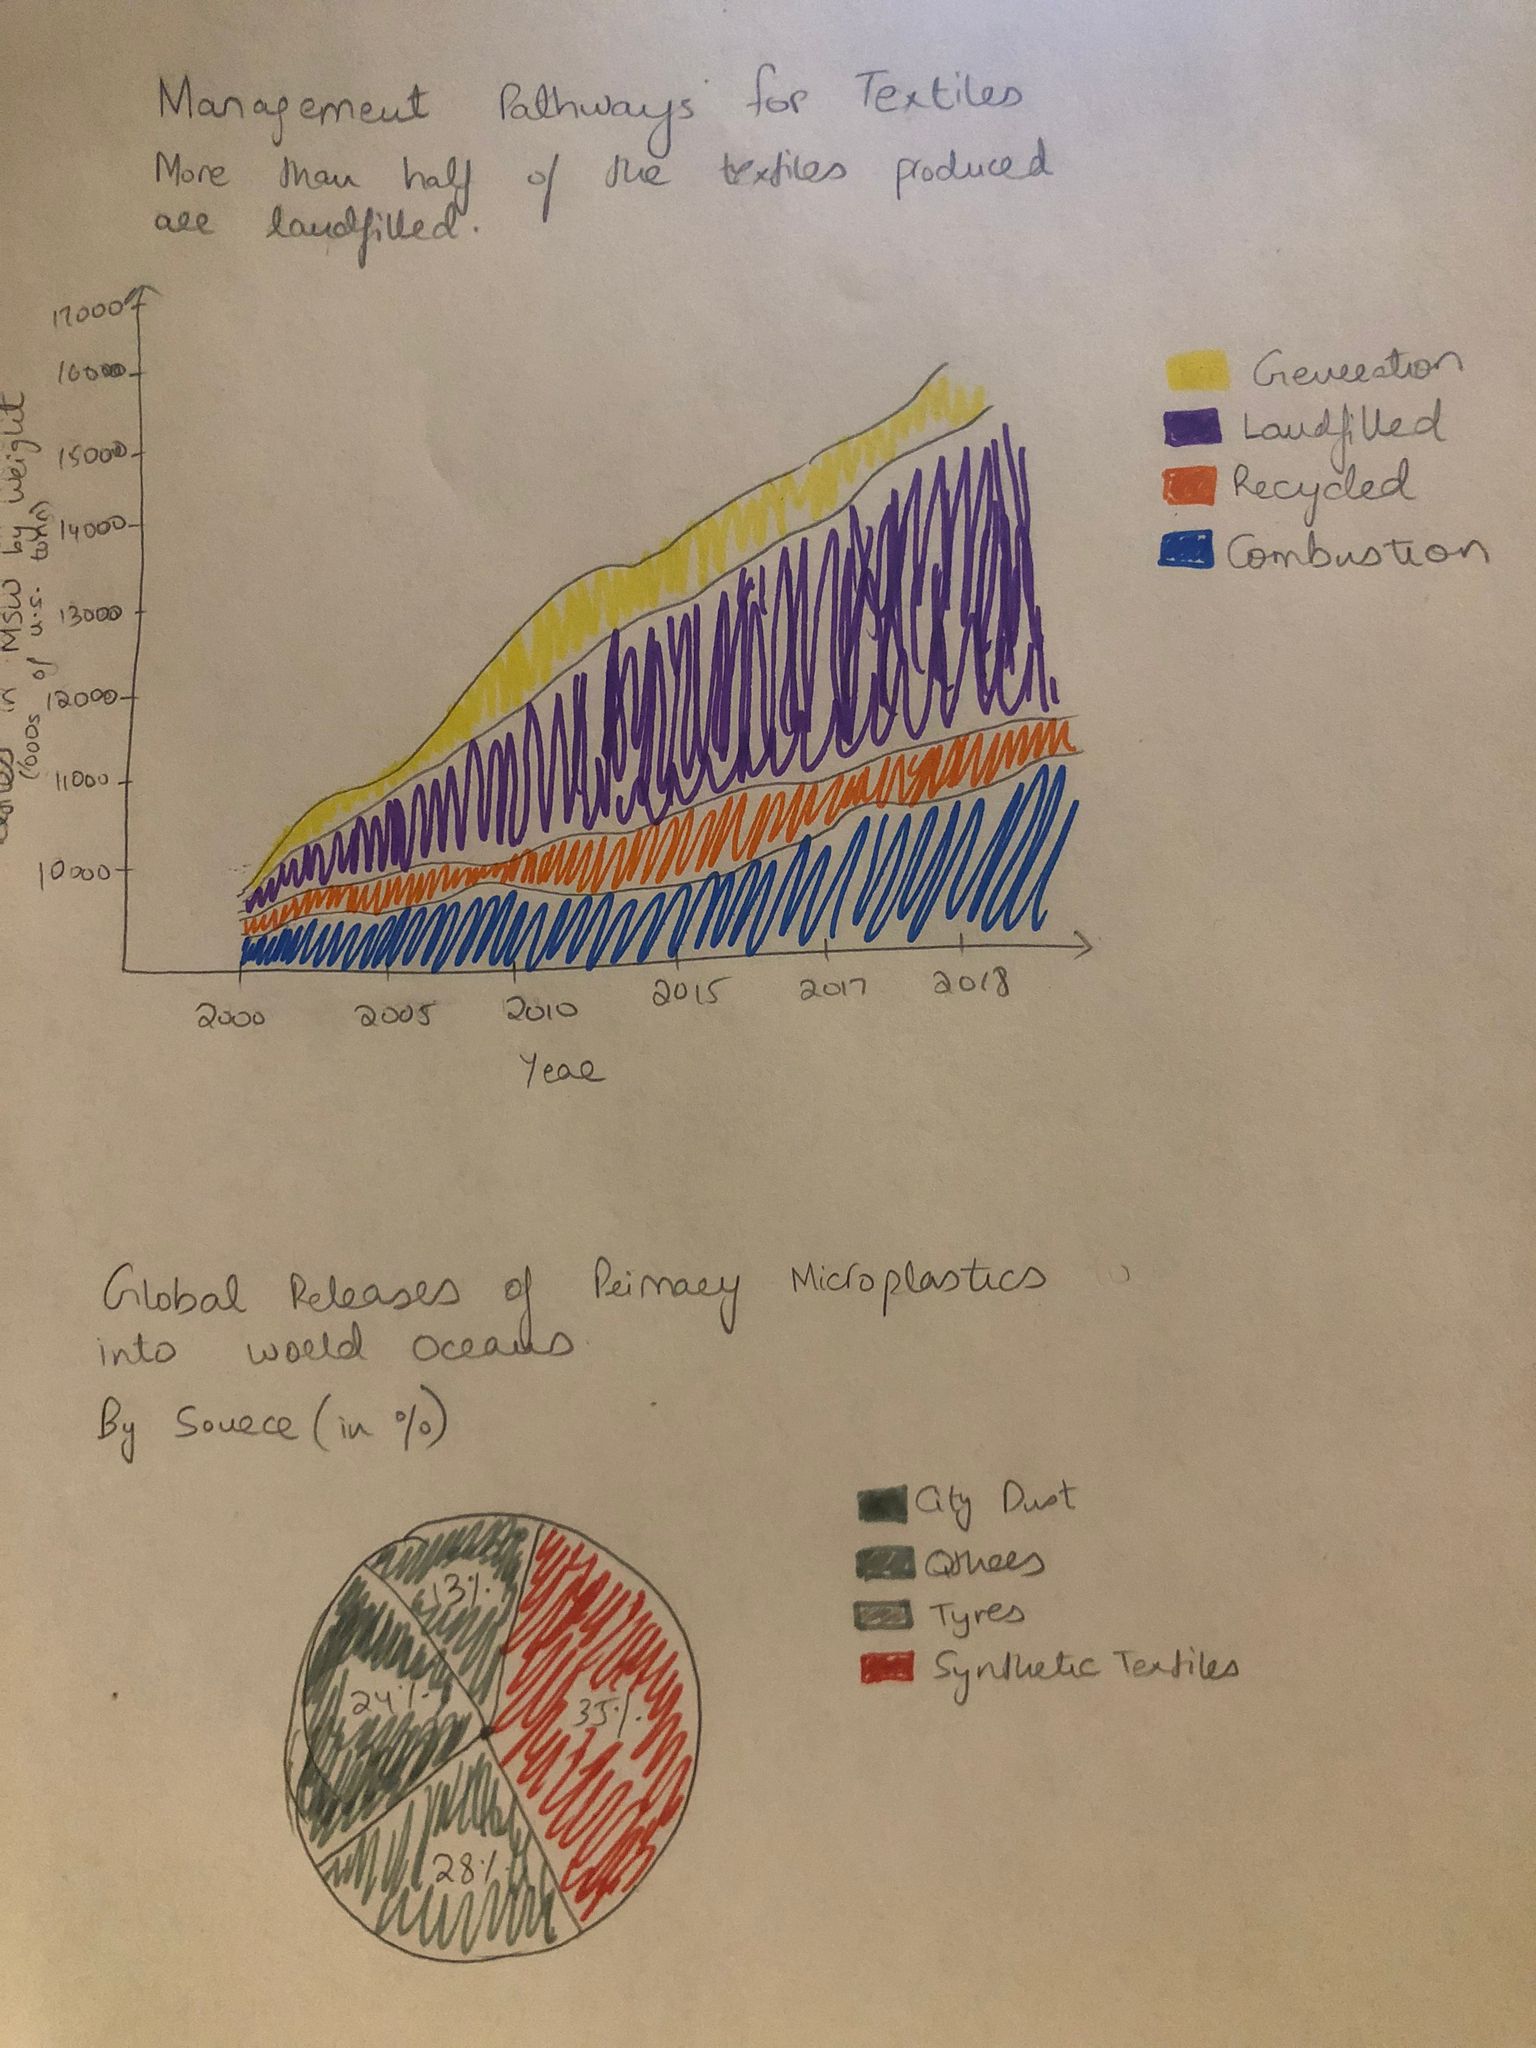 Management Pathways for Textiles
More than half of the textiles produced
are landfilled.
17000
16000
15000
14000
13000
12000
11000
10000
in MSW by weight
(1000s of U.S. tonn)
2000 2005 2010 2015 2017 2018
Year
Generation
Landfilled
Recycled
Combustion
Global Releases of Primary Microplastics
into world Oceans
By Source (in %)
13%
24%
35%
28%
City Dust
Others
Tyres
Synthetic Textiles